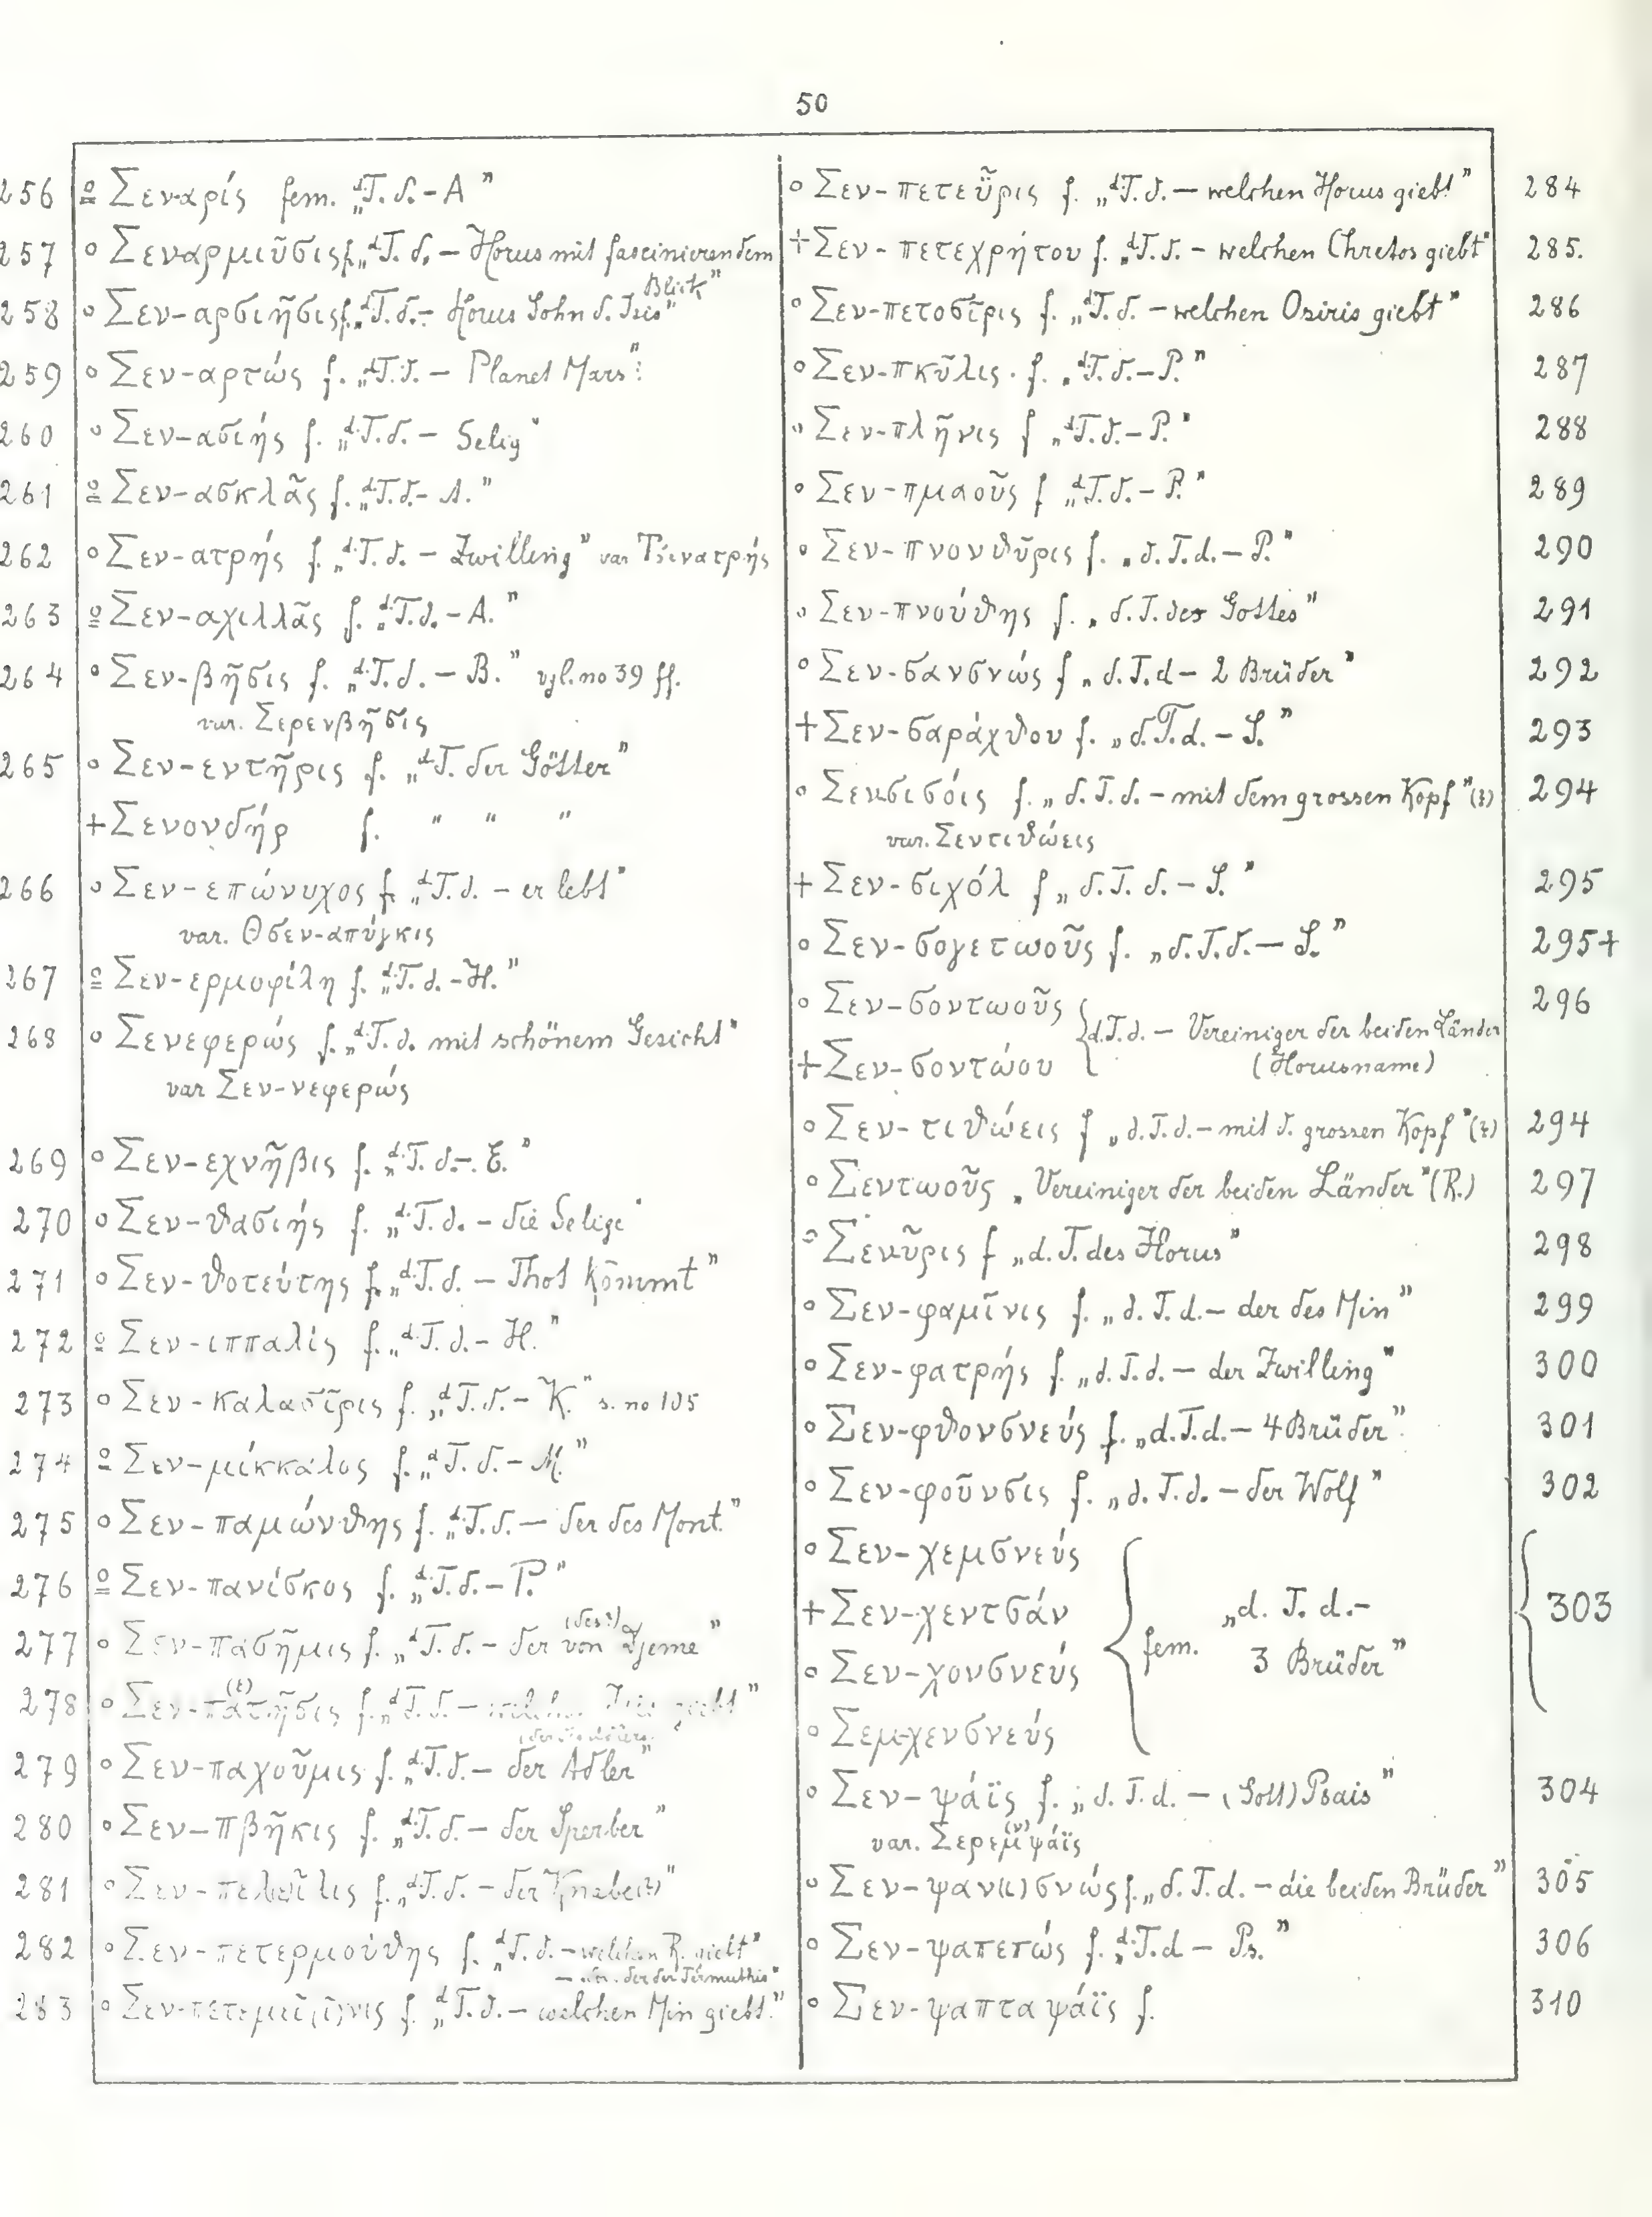 50
256 o Σεναρίς fem. „d. T. d. – A"
257 o Σεναρμιῦσις f. „d. T. d. – Horus mit fascinierendem
Blick"
258 o Σεν-αρσιῆσις f. „d. T. d. – Horus Sohn d. Isis"
259 o Σεν-αρτώς f. „d. T. d. – Planet Mars"
260 o Σεν-ασιής f. „d. T. d. – Selig"
261 o Σεν-ασκλᾶς f. „d. T. d. – A."
262 o Σεν-ατρής f. „d. T. d. – Zwilling" var Τσενατρής
263 o Σεν-αχιλλᾶς f. „d. T. d. – A."
264 o Σεν-βῆσις f. „d. T. d. – B." vgl. no 39 ff.
var. Σερενβῆσις
265 o Σεν-εντῆρις f. „d. T. der Götter"
+ Σενονδήρ f. " " "
266 o Σεν-επώνυχος f. „d. T. d. – er lebt"
var. Θσεν-απύγκις
267 o Σεν-ερμοφίλη f. „d. T. d. – H."
268 o Σενεφερώς f. „d. T. d. mit schönem Gesicht"
var Σεν-νεφερώς
269 o Σεν-εχνῆβις f. „d. T. d. –. E."
270 o Σεν-θασιής f. „d. T. d. – die Selige"
271 o Σεν-θοτεύτης f. „d. T. d. – Thot kommt"
272 o Σεν-ιππαλίς f. „d. T. d. – H."
273 o Σεν-καλασῖρις f. „d. T. d. – K." s. no 105
274 o Σεν-μίκκαλος f. „d. T. d. – M."
275 o Σεν-παμώνθης f. „d. T. d. – der des Mont."
276 o Σεν-πανίσκος f. „d. T. d. – P."
(des?)
277 o Σεν-πασῆμις f. „d. T. d. – der von Djeme"
(ε)
278 o Σεν-πατῆσις f. „d. T. d. – welchen Isis giebt"
279 o Σεν-παχοῦμις f. „d. T. d. – der Adler"
280 o Σεν-πβῆκις f. „d. T. d. – der Sperber"
281 o Σεν-πελεῖλις f. „d. T. d. – der Knabe(?)"
282 o Σεν-πετερμούθης f. „d. T. d. – welchen R. giebt"
der der Termuthis"
283 o Σεν-πετεμεῖ(ι)νις f. „d. T. d. – welchen Min giebt."
o Σεν-πετεῦρις f. „d. T. d. – welchen Horus giebt" 284
+ Σεν-πετεχρήτου f. „d. T. d. – welchen Chretos giebt" 285.
o Σεν-πετοσῖρις f. „d. T. d. – welchen Osiris giebt" 286
o Σεν-πκῦλις. f. „d. T. d. – P." 287
o Σεν-πλῆνις f „d. T. d. – P." 288
o Σεν-πμαοῦς f „d. T. d. – P." 289
o Σεν-πνονθῦρις f. „d. T. d. – P." 290
o Σεν-πνούθης f. „d. T. des Gottes" 291
o Σεν-σανσνώς f „d. T. d – 2 Brüder" 292
+ Σεν-σαράχθου f. „d. T. d. – S." 293
o Σενσισόις f. „d. T. d. – mit dem grossen Kopf"(?) 294
var. Σεντιθώεις
+ Σεν-σιχόλ f „d. T. d. – S." 295
o Σεν-σογετωοῦς f. „d. T. d. – S." 295+
o Σεν-σοντωοῦς 296
d. T. d. – Vereiniger der beiden Länder
+ Σεν-σοντώου (Horusname)
o Σεν-τιθώεις f „d. T. d. – mit d. grossen Kopf"(?) 294
o Σεντωοῦς „Vereiniger der beiden Länder"(R.) 297
o Σενῦρις f „d. T. des Horus" 298
o Σεν-φαμῖνις f. „d. T. d. – der des Min" 299
o Σεν-φατρής f. „d. T. d. – der Zwilling" 300
o Σεν-φθονσνεύς f. „d. T. d. – 4 Brüder" 301
o Σεν-φοῦνσις f. „d. T. d. – der Wolf" 302
o Σεν-χεμσνεύς
+ Σεν-χεντσάν „d. T. d. – 303
o Σεν-χονσνεύς fem. 3 Brüder"
o Σεμχενσνεύς
o Σεν-ψάϊς f. „d. T. d. – (Gott) Psais" 304
var. Σερεμ(ν)ψάϊς
o Σεν-ψαν(ι)σνώς f. „d. T. d. – die beiden Brüder" 305
o Σεν-ψαπετώς f. „d. T. d – Ps." 306
o Σεν-ψαπταψάϊς f. 310